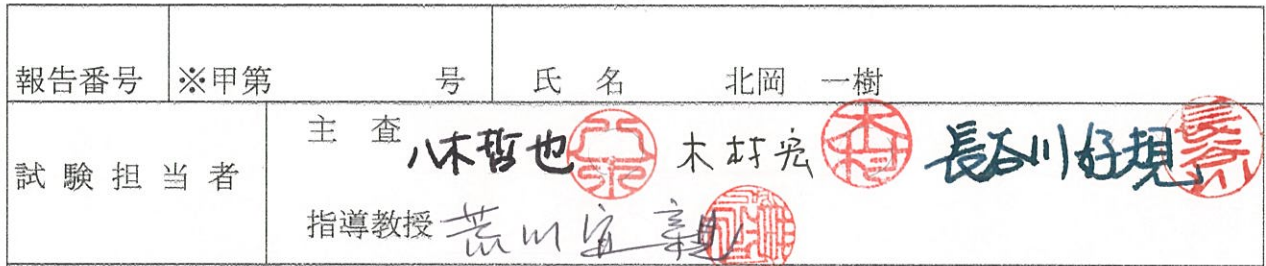 報告番号 ※甲第 号 氏 名 北岡 一樹
試 験 担 当 者 主 査 八木哲也 八木 木村宏 木村 長谷川好規
指導教授 荒川宜親